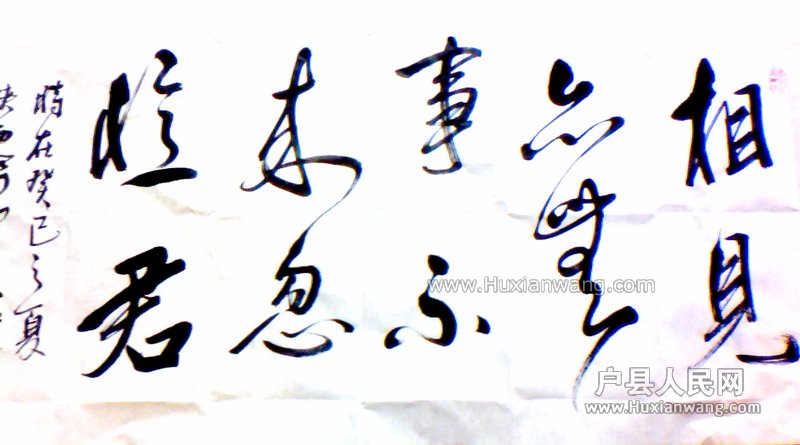 相見
亦無
事不
来忽
憶君
時在癸巳之夏
www.Huxianwang.com
户县人民网
www.Huxianwang.com